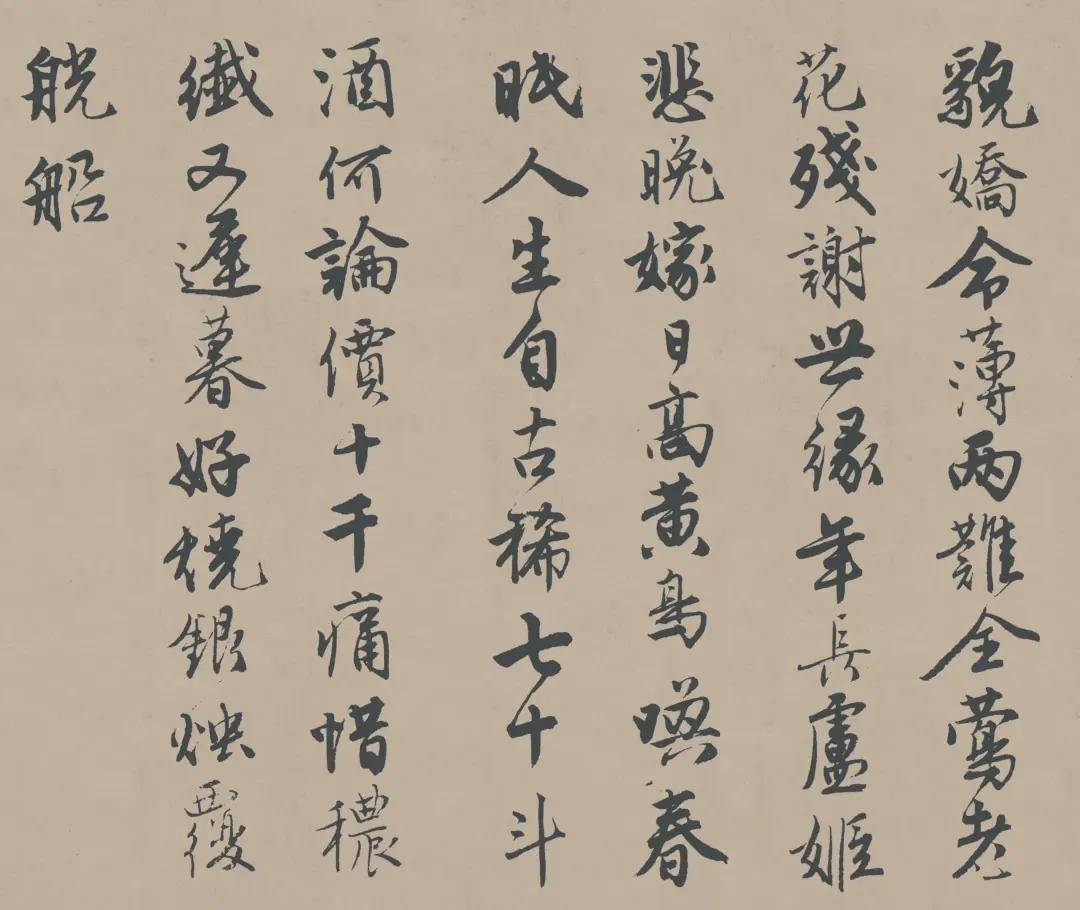 貌嬌命薄两難全鶯老
花殘謝世緣年長盧姬
悲晚嫁日高黄鳥喚春
眠人生自古稀七十斗
酒何論價十千痛惜穠
纖又遲暮好燒銀燭覆
觥船